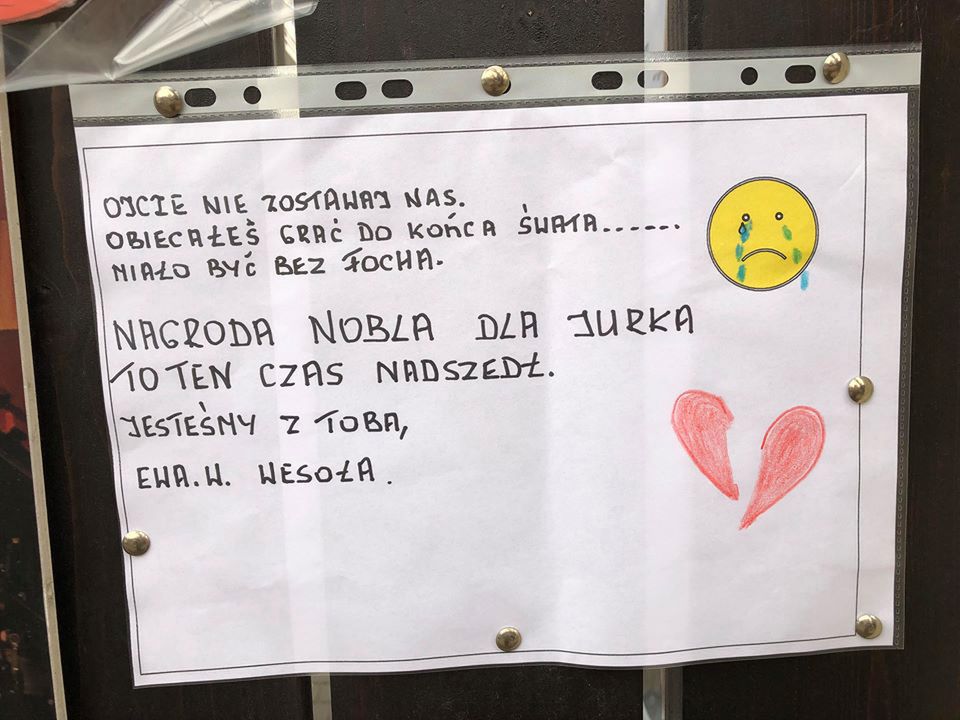 OJCIE NIE ZOSTAWAJ NAS.
OBIECAŁEŚ GRAĆ DO KOŃCA ŚWATA.......
MIAŁO BYĆ BEZ FOCHA.
NAGRODA NOBLA DLA JURKA
TO TEN CZAS NADSZEDŁ.
JESTEŚMY Z TOBA,
EWA.W. WESOŁA.